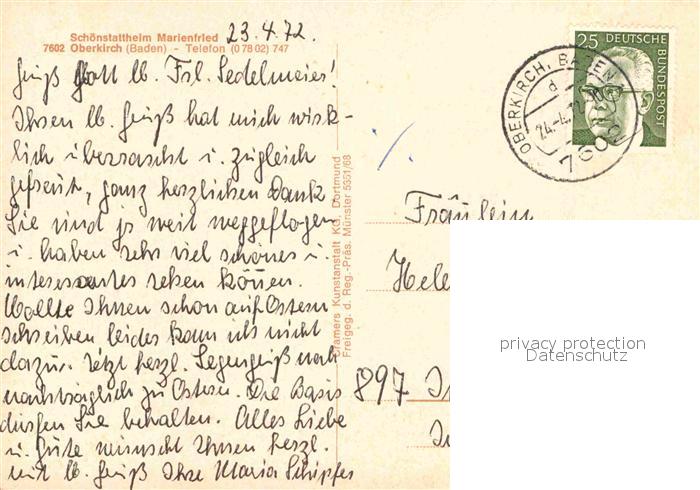 Schönstattheim Marienfried
7602 Oberkirch (Baden) - Telefon (0 78 02) 747
23.4.72.
Grüß Gott lb. Frl. Sedelmeier!
Ihren lb. Gruß hat mich wirk-
lich überrascht u. zugleich
gefreut, ganz herzlichen Dank
Sie sind ja weit weggeflogen
u. haben sehr viel schönes u.
interessantes sehen können.
Wollte Ihnen schon auf Ostern
schreiben leider kam ich nicht
dazu. Jetzt herzl. Segensgruß noch
nachträglich zu Ostern. Die Basis
dürfen Sie behalten. Alles Liebe
u. Gute wünscht Ihnen herzl.
mit lb. Gruß Ihre Maria Schipfer
Cramers Kunstanstalt KG, Dortmund
Freigeg. d. Reg.-Präs. Münster 5351/68
25 DEUTSCHE
BUNDESPOST
OBERKIRCH, BADEN
d
24.-4.72
7602
Fräulein
Hele
897 I
privacy protection
Datenschutz